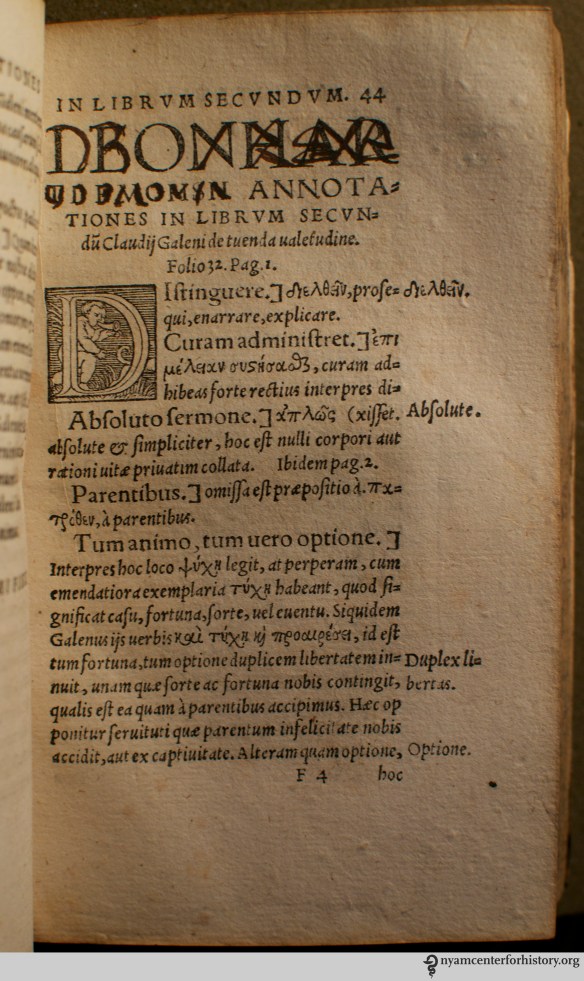 IN LIBRVM SECVNDVM. 44
ANNOTA=
TIONES IN LIBRVM SECVN=
dũ Claudij Galeni de tuenda ualetudine.
Folio 32. Pag. 1.
DIstinguere.] διελθεῖν, prose= διελθεῖν.
qui, enarrare, explicare.
Curam administret.] ἐπι
μέλειαν συστήσασθαι, curam ad=
hibeas forte rectius interpres di=
Absoluto sermone.] ἁπλῶς (xisset. Absolute.
absolute & simpliciter, hoc est nulli corpori aut
rationi uitæ priuatim collata. Ibidem pag. 2.
Parentibus.] omissa est præpositio à. πα=
τρόθεν, à parentibus.
Tum animo, tum uero optione.]
Interpres hoc loco ψύχῃ legit, at perperam, cum
emendatiora exemplaria τύχῃ habeant, quod si=
gnificat casu, fortuna, sorte, uel euentu. Siquidem
Galenus ijs uerbis καὶ τύχῃ καὶ προαιρέσει, id est
tum fortuna, tum optione duplicem libertatem in= Duplex li=
nuit, unam quæ sorte ac fortuna nobis contingit, bertas.
qualis est ea quam à parentibus accipimus. Hæc op
ponitur seruituti quæ parentum infelicitate nobis
accidit, aut ex captiuitate. Alteram quam optione, Optione.
F 4 hoc
nyamcenterforhistory.org